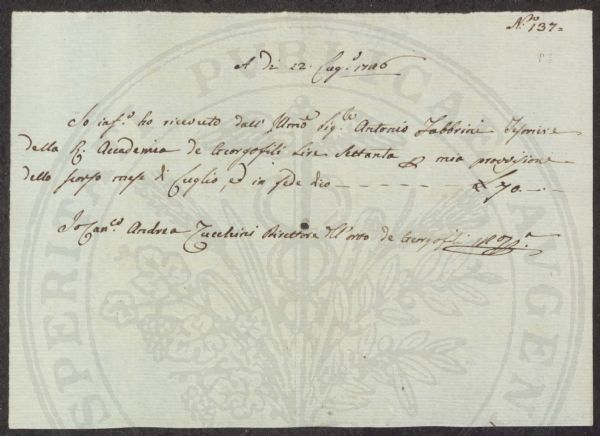 N.ro 137=
A di 22. Lug.o 1786
Io inf.o ho ricevuto dall' Illmo Sig.re Antonio Fabbrini Tesoriere
della R. Accademia de Georgofili Lire Settanta p mia provvisione
dello scorso mese di Luglio ed in fede dico - - - - - - - - £ 70. - . -
Io Can.co Andrea Zucchini Direttore dell'orto de Georgofili
PROSPERITATI PUBLICAE AUGENDAE